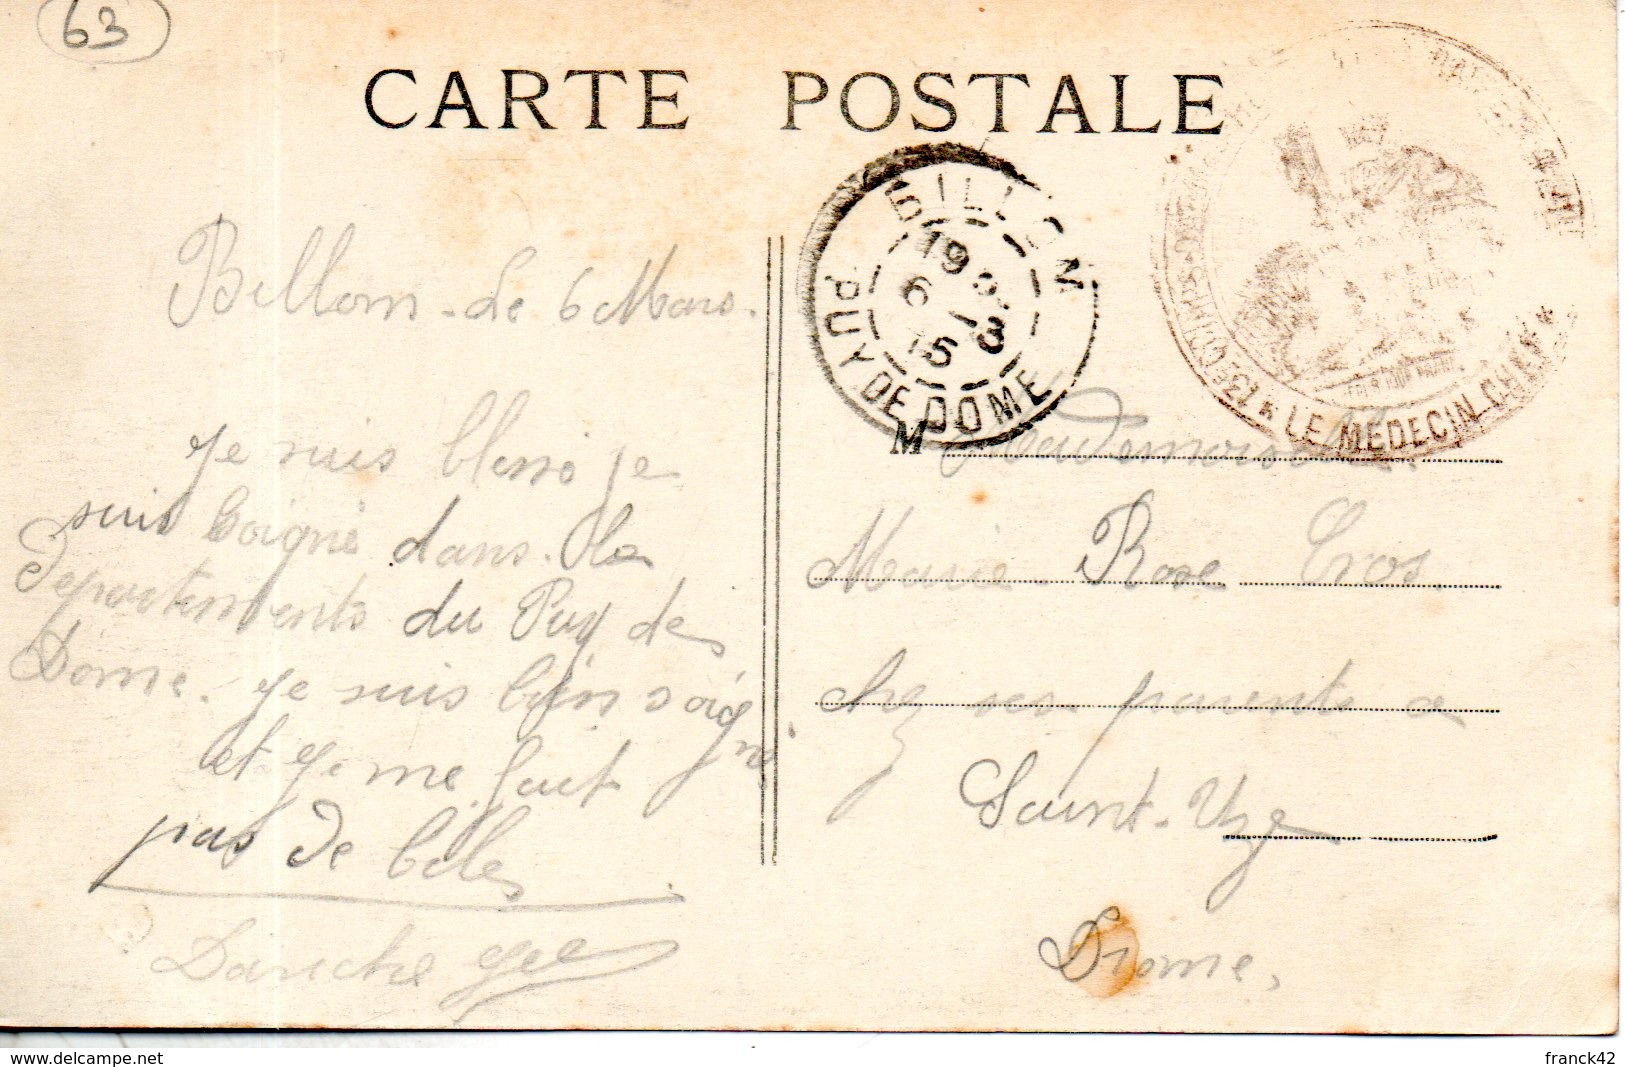 63
CARTE POSTALE
BILLOM
19
6 - 3
15
PUY DE DOME
* LE MÉDECIN CHEF *
Billom - Le 6 Mars.
Je suis blessé je
suis soigné dans la
Departements du Puy de
Dome. Je suis bien soigné
et Je me fait
pas de biles
M
Mademoiselle
Marie Rose Cros.
chez ses parents a
Saint-Uze
Drome.
www.delcampe.net
franck42